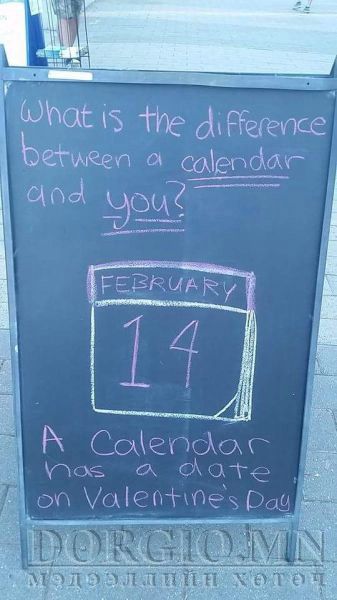 What is the difference
between a calendar
and you?
FEBRUARY
14
A Calendar
has a date
on Valentine's Day
DORGIO.MN
МЭДЭЭЛЛИЙН ХӨТӨЧ